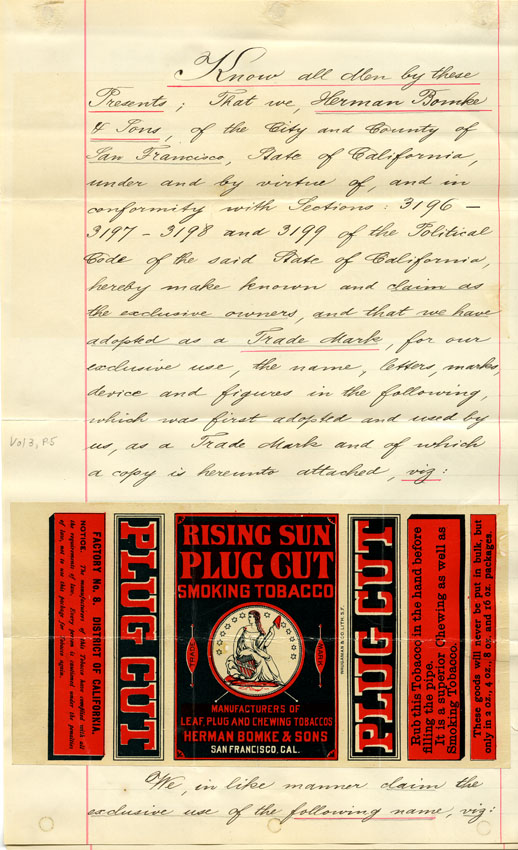 Know all Men by these
Presents; That we, Herman Bomke
& Sons, of the City and County of
San Francisco, State of California,
under and by virtue of, and in
conformity with Sections: 3196 –
3197 – 3198 and 3199 of the Political
Code of the said State of California,
hereby make known and claim as
the exclusive owners, and that we have
adopted as a Trade Mark, for our
exclusive use, the name, letters, marks,
device and figures in the following,
which was first adopted and used by
us, as a Trade Mark and of which
a copy is hereunto attached, viz:
Vol 3, P.5
FACTORY No. 8. DISTRICT OF CALIFORNIA.
NOTICE. The manufacturers of this Tobacco have complied with all
the requirements of law. Every person is cautioned under the penalties
of law, not to use this package for Tobacco again.
PLUG CUT
RISING SUN
PLUG CUT
SMOKING TOBACCO
TRADE MARK
MANUFACTURERS OF
LEAF, PLUG AND CHEWING TOBACCOS
HERMAN BOMKE & SONS
SAN FRANCISCO, CAL.
& CO. LITH. S.F.
PLUG CUT
Rub this Tobacco in the hand before
filling the pipe.
It is a superior Chewing as well as
Smoking Tobacco.
These goods will never be put in bulk, but
only in 2 oz., 4 oz., 8 oz. and 16 oz. packages.
We, in like manner claim the
exclusive use of the following name, viz: